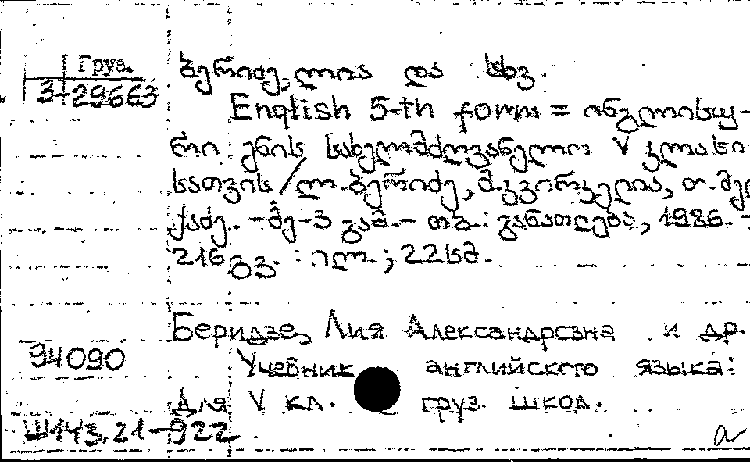 Груз.
3-29663
ბერიძე, ლია და სხვ.
English 5-th form = ინგლისუ-
რი ენის სახელმძღვანელო V კლასი-
სათვის / ლ. ბერიძე, მ. კვირკველია, თ. მელ
ქაძე. - მე-3 გამ. - თბ.: განათლება, 1986. -
216 გვ. : ილ. ; 22 სმ.
Беридзе, Лия Александровна и др.
94090
Учебник английского языка:
Для V кл. груз. школ.
Ш143.21-922